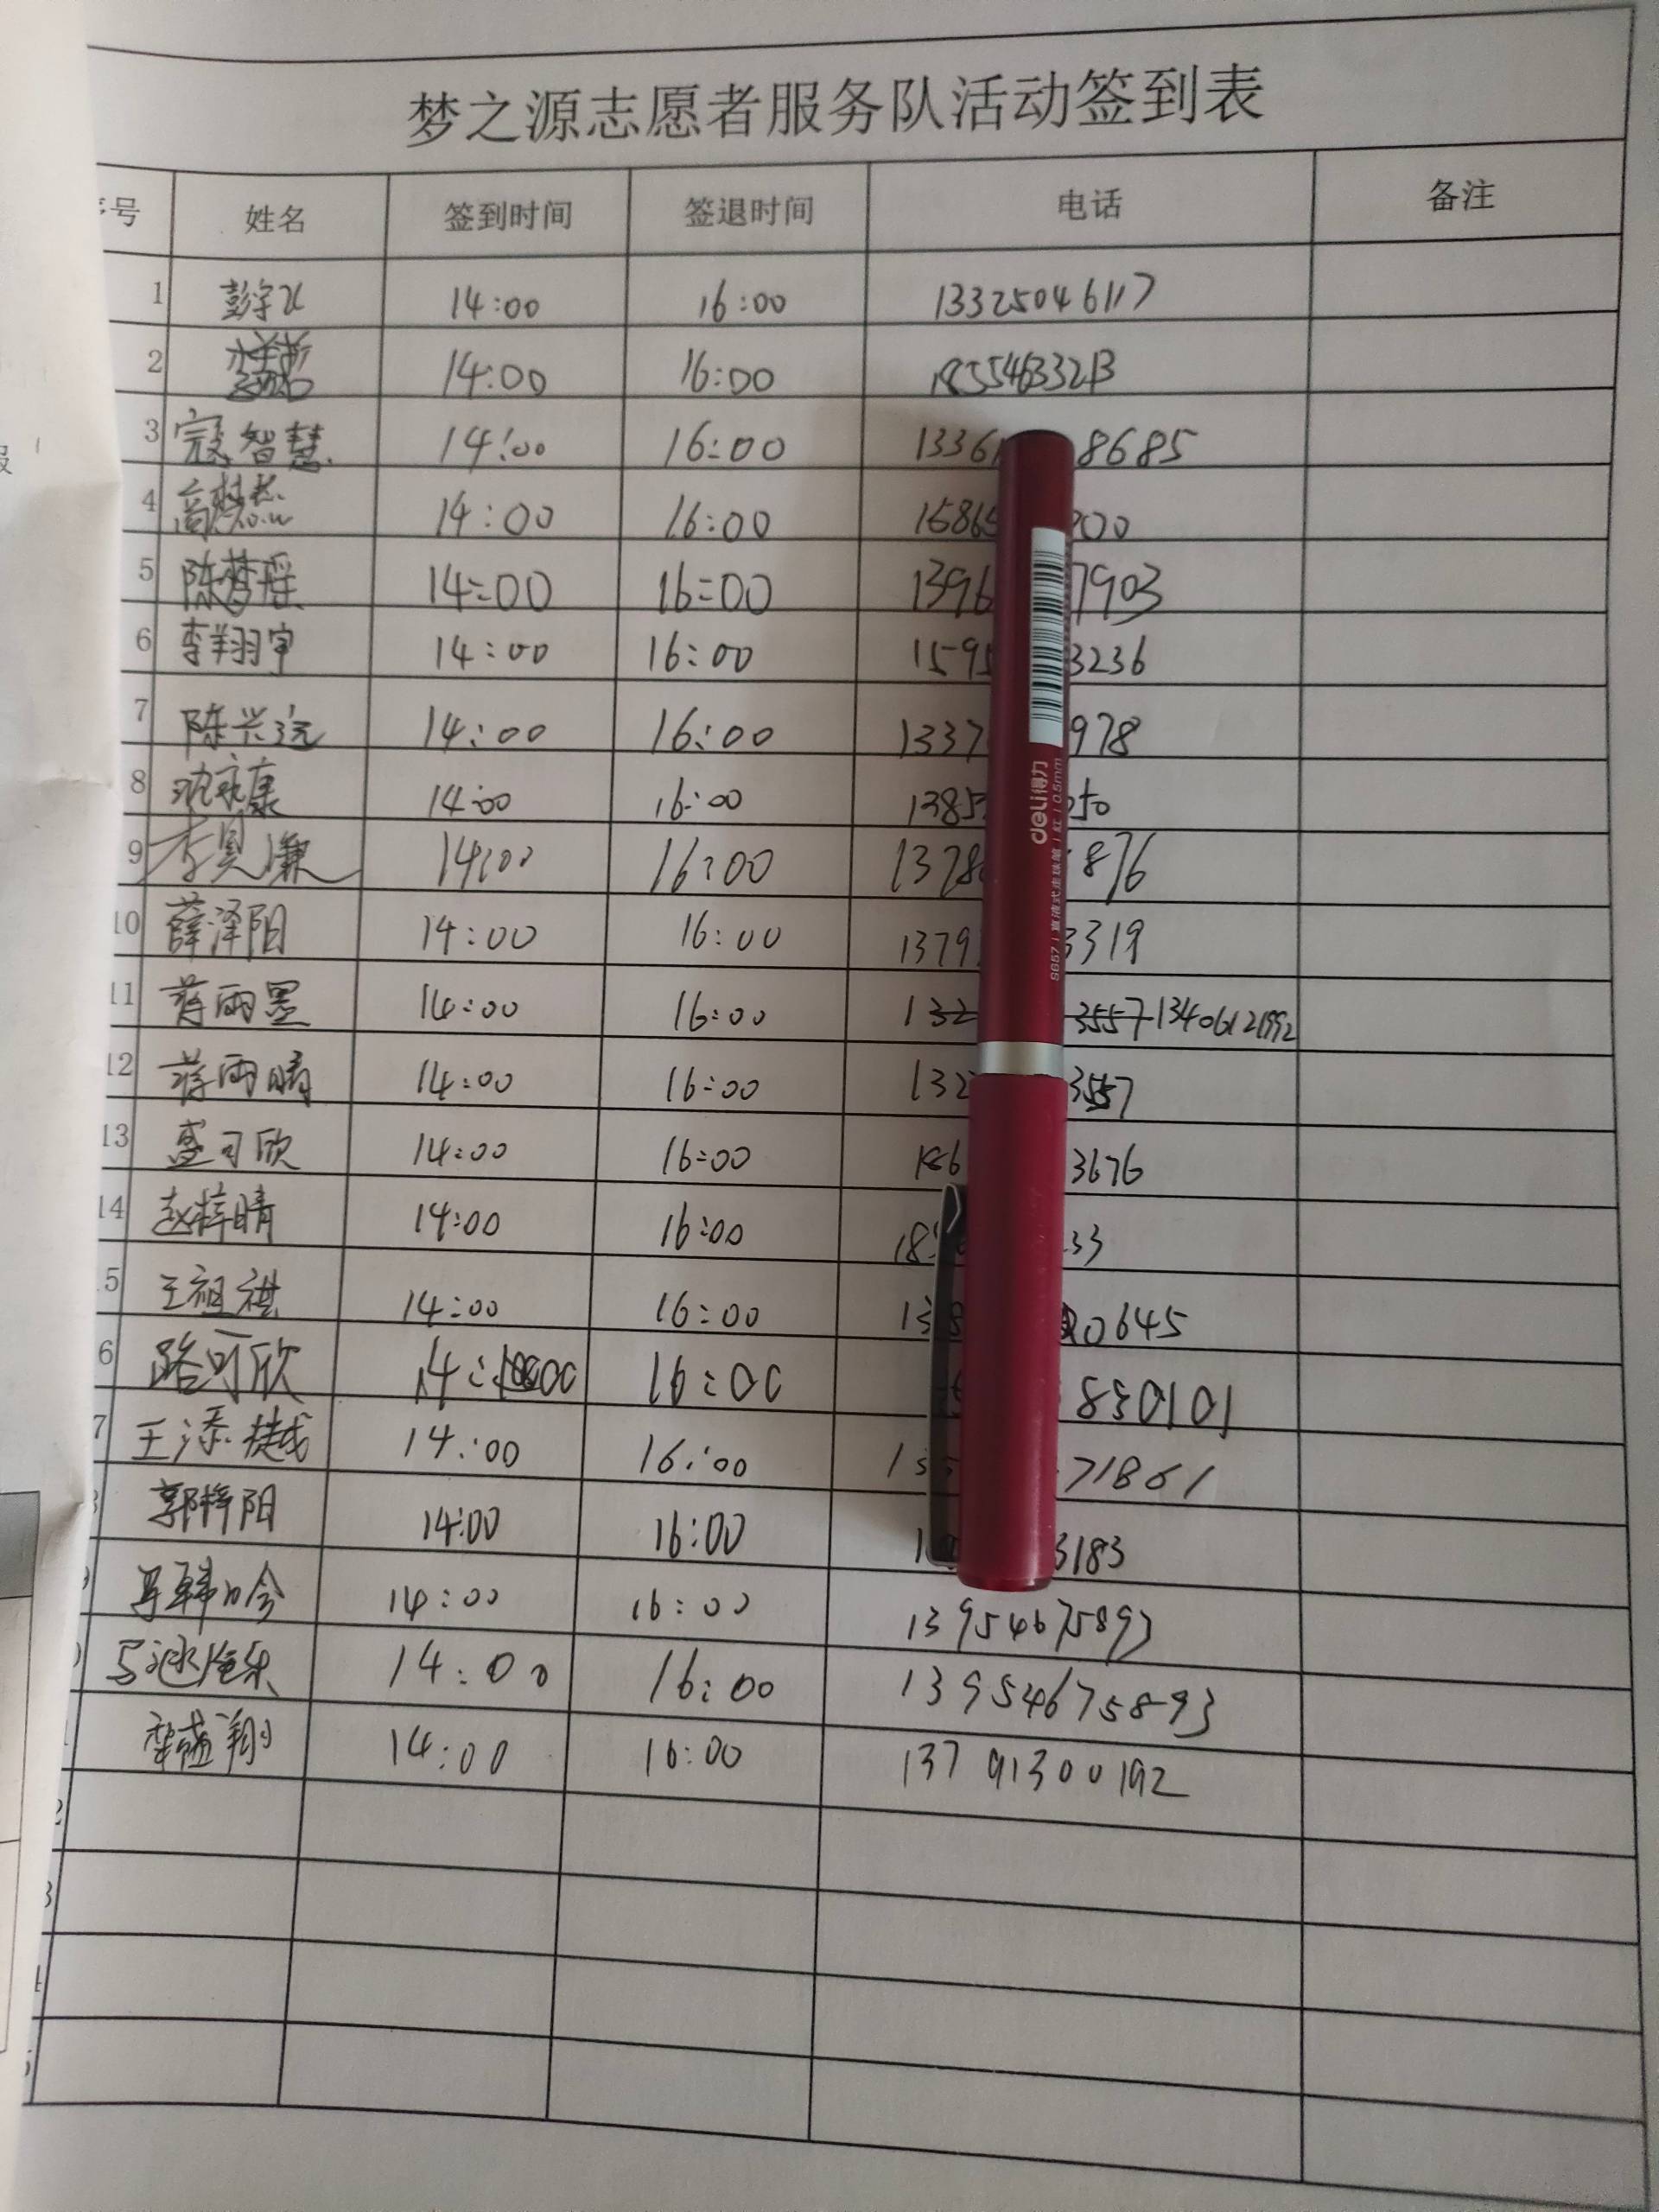 梦之源志愿者服务队活动签到表
号 姓名 签到时间 签退时间 电话 备注
1 14:00 16:00 13325046117
2 14:00 16:00 18554633213
3 寇智慧 14:00 16:00 1336 8685
4 14:00 16:00 15865 00
5 陈梦瑶 14:00 16:00 1396 7903
6 李翔宇 14:00 16:00 1595 3236
7 陈兴远 14:00 16:00 1337 978
8 永康 14:00 16:00 1385 50
9 李昊谦 14:00 16:00 1378 876
10 薛泽阳 14:00 16:00 1379 3319
11 蒋雨墨 14:00 16:00 132 3557 13406121992
12 蒋雨晴 14:00 16:00 132 3557
13 盛可欣 14:00 16:00 186 3676
14 赵梓晴 14:00 16:00 18 33
5 王祖祺 14:00 16:00 13 0645
6 路可欣 14:00 16:00 830101
7 王添 14:00 16:00 1 71861
郭梓阳 14:00 16:00 1 3183
14:00 16:00 13954675893
14:00 16:00 13954675893
李盛翔 14:00 16:00 13791300192
deli得力
S657 | 直液式走珠笔 | 红 | 0.5mm